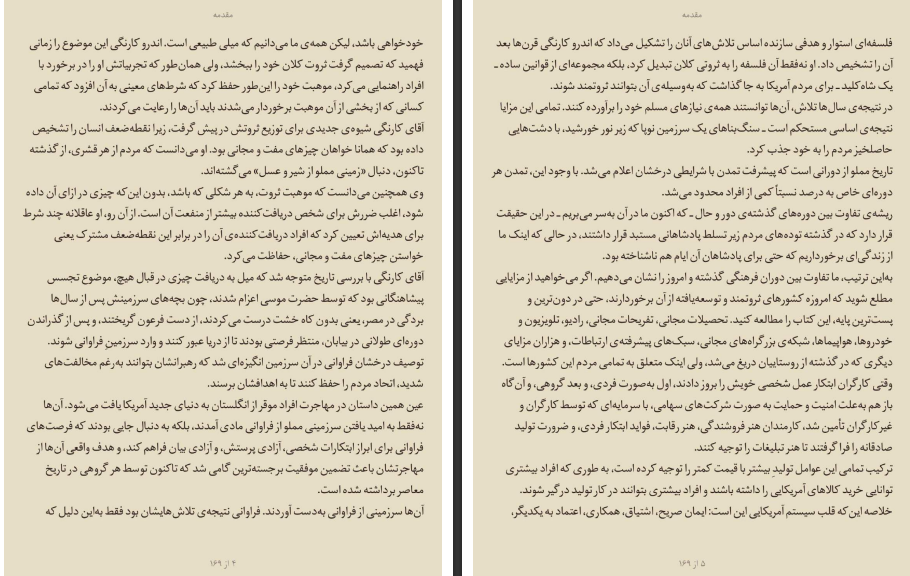 مقدمه
خودخواهی باشد، لیکن همه‌ی ما می‌دانیم که میلی طبیعی است. اندرو کارنگی این موضوع را زمانی
فهمید که تصمیم گرفت ثروت کلان خود را ببخشد، ولی همان‌طور که تجربیاتش او را در برخورد با
افراد راهنمایی می‌کرد، موهبت خود را این‌طور حفظ کرد که شرط‌های معینی به آن افزود که تمامی
کسانی که از بخشی از آن موهبت برخوردار می‌شدند باید آن‌ها را رعایت می‌کردند.
آقای کارنگی شیوه‌ی جدیدی برای توزیع ثروتش در پیش گرفت، زیرا نقطه‌ضعف انسان را تشخیص
داده بود که همانا خواهان چیزهای مفت و مجانی بود. او می‌دانست که مردم از هر قشری، از گذشته
تاکنون، دنبال «زمینی مملو از شیر و عسل» می‌گشته‌اند.
وی همچنین می‌دانست که موهبت ثروت، به هر شکلی که باشد، بدون این‌که چیزی در ازای آن داده
شود، اغلب ضررش برای شخص دریافت‌کننده بیشتر از منفعت آن است. از آن رو، او عاقلانه چند شرط
برای هدیه‌اش تعیین کرد که افراد دریافت‌کننده‌ی آن را در برابر این نقطه‌ضعف مشترک یعنی
خواستن چیزهای مفت و مجانی، حفاظت می‌کرد.
آقای کارنگی با بررسی تاریخ متوجه شد که میل به دریافت چیزی در قبال هیچ، موضوع تجسس
پیشاهنگانی بود که توسط حضرت موسی اعزام شدند، چون بچه‌های سرزمینش پس از سال‌ها
بردگی در مصر، یعنی بدون کاه خشت درست می‌کردند، از دست فرعون گریختند، و پس از گذراندن
دوره‌ای طولانی در بیابان، منتظر فرصتی بودند تا از دریا عبور کنند و وارد سرزمین فراوانی شوند.
توصیف درخشان فراوانی در آن سرزمین انگیزه‌ای شد که رهبرانشان بتوانند به‌رغم مخالفت‌های
شدید، اتحاد مردم را حفظ کنند تا به اهدافشان برسند.
عین همین داستان در مهاجرت افراد موقر از انگلستان به دنیای جدید آمریکا یافت می‌شود. آن‌ها
نه‌فقط به امید یافتن سرزمینی مملو از فراوانی مادی آمدند، بلکه به دنبال جایی بودند که فرصت‌های
فراوانی برای ابراز ابتکارات شخصی، آزادی پرستش، و آزادی بیان فراهم کند، و هدف واقعی آن‌ها از
مهاجرتشان باعث تضمین موفقیت برجسته‌ترین گامی شد که تاکنون توسط هر گروهی در تاریخ
معاصر برداشته شده است.
آن‌ها سرزمینی از فراوانی به‌دست آوردند. فراوانی نتیجه‌ی تلاش‌هایشان بود فقط به‌این دلیل که
۴ از ۱۶۹
مقدمه
فلسفه‌ای استوار و هدفی سازنده اساس تلاش‌های آنان را تشکیل می‌داد که اندرو کارنگی قرن‌ها بعد
آن را تشخیص داد. او نه‌فقط آن فلسفه را به ثروتی کلان تبدیل کرد، بلکه مجموعه‌ای از قوانین ساده ـ
یک شاه‌کلید ـ برای مردم آمریکا به جا گذاشت که به‌وسیله‌ی آن بتوانند ثروتمند شوند.
در نتیجه‌ی سال‌ها تلاش، آن‌ها توانستند همه‌ی نیازهای مسلم خود را برآورده کنند. تمامی این مزایا
نتیجه‌ی اساسی مستحکم است ـ سنگ‌بناهای یک سرزمین نوپا که زیر نور خورشید، با دشت‌هایی
حاصلخیز مردم را به خود جذب کرد.
تاریخ مملو از دورانی است که پیشرفت تمدن با شرایطی درخشان اعلام می‌شد. با وجود این، تمدن هر
دوره‌ای خاص به درصد نسبتاً کمی از افراد محدود می‌شد.
ریشه‌ی تفاوت بین دوره‌های گذشته‌ی دور و حال ـ که اکنون ما در آن به‌سر می‌بریم ـ در این حقیقت
قرار دارد که در گذشته توده‌های مردم زیر تسلط پادشاهانی مستبد قرار داشتند، در حالی که اینک ما
از زندگی‌ای برخورداریم که حتی برای پادشاهان آن ایام هم ناشناخته بود.
به‌این ترتیب، ما تفاوت بین دوران فرهنگی گذشته و امروز را نشان می‌دهیم. اگر می‌خواهید از مزایایی
مطلع شوید که امروزه کشورهای ثروتمند و توسعه‌یافته از آن برخوردارند، حتی در دون‌ترین و
پست‌ترین پایه، این کتاب را مطالعه کنید. تحصیلات مجانی، تفریحات مجانی، رادیو، تلویزیون و
خودروها، هواپیماها، شبکه‌ی بزرگراه‌های مجانی، سبک‌های پیشرفته‌ی ارتباطات، و هزاران مزایای
دیگری که در گذشته از روستاییان دریغ می‌شد، ولی اینک متعلق به تمامی مردم این کشورها است.
وقتی کارگران ابتکار عمل شخصی خویش را بروز دادند، اول به‌صورت فردی، و بعد گروهی، و آن‌گاه
باز هم به‌علت امنیت و حمایت به صورت شرکت‌های سهامی، با سرمایه‌ای که توسط کارگران و
غیرکارگران تأمین شد، کارمندان هنر فروشندگی، هنر رقابت، فواید ابتکار فردی، و ضرورت تولید
صادقانه را فرا گرفتند تا هنر تبلیغات را توجیه کنند.
ترکیب تمامی این عوامل تولید بیشتر با قیمت کمتر را توجیه کرده است، به طوری که افراد بیشتری
توانایی خرید کالاهای آمریکایی را داشته باشند و افراد بیشتری بتوانند در کار تولید درگیر شوند.
خلاصه این‌که قلب سیستم آمریکایی این است: ایمان صریح، اشتیاق، همکاری، اعتماد به یکدیگر،
۵ از ۱۶۹